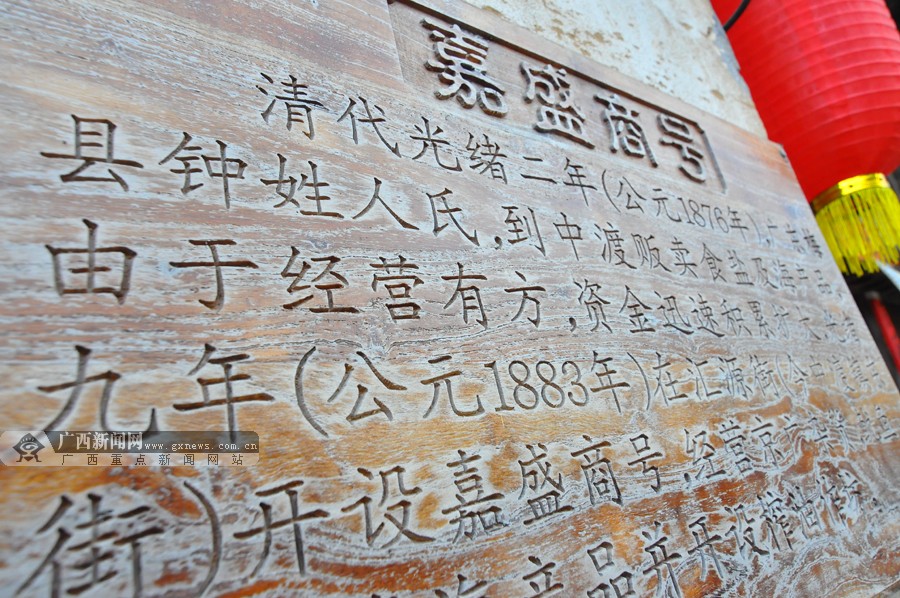 嘉盛商号
清代光绪二年(公元1876年),广东
县钟姓人氏,到中渡贩卖食盐及海产品
由于经营有方,资金迅速积累
九年(公元1883年)在汇源街(今中
街)开设嘉盛商号,经营京
产品并开设榨油作坊。
广西新闻网 www.gxnews.com.cn
广西重点新闻网站